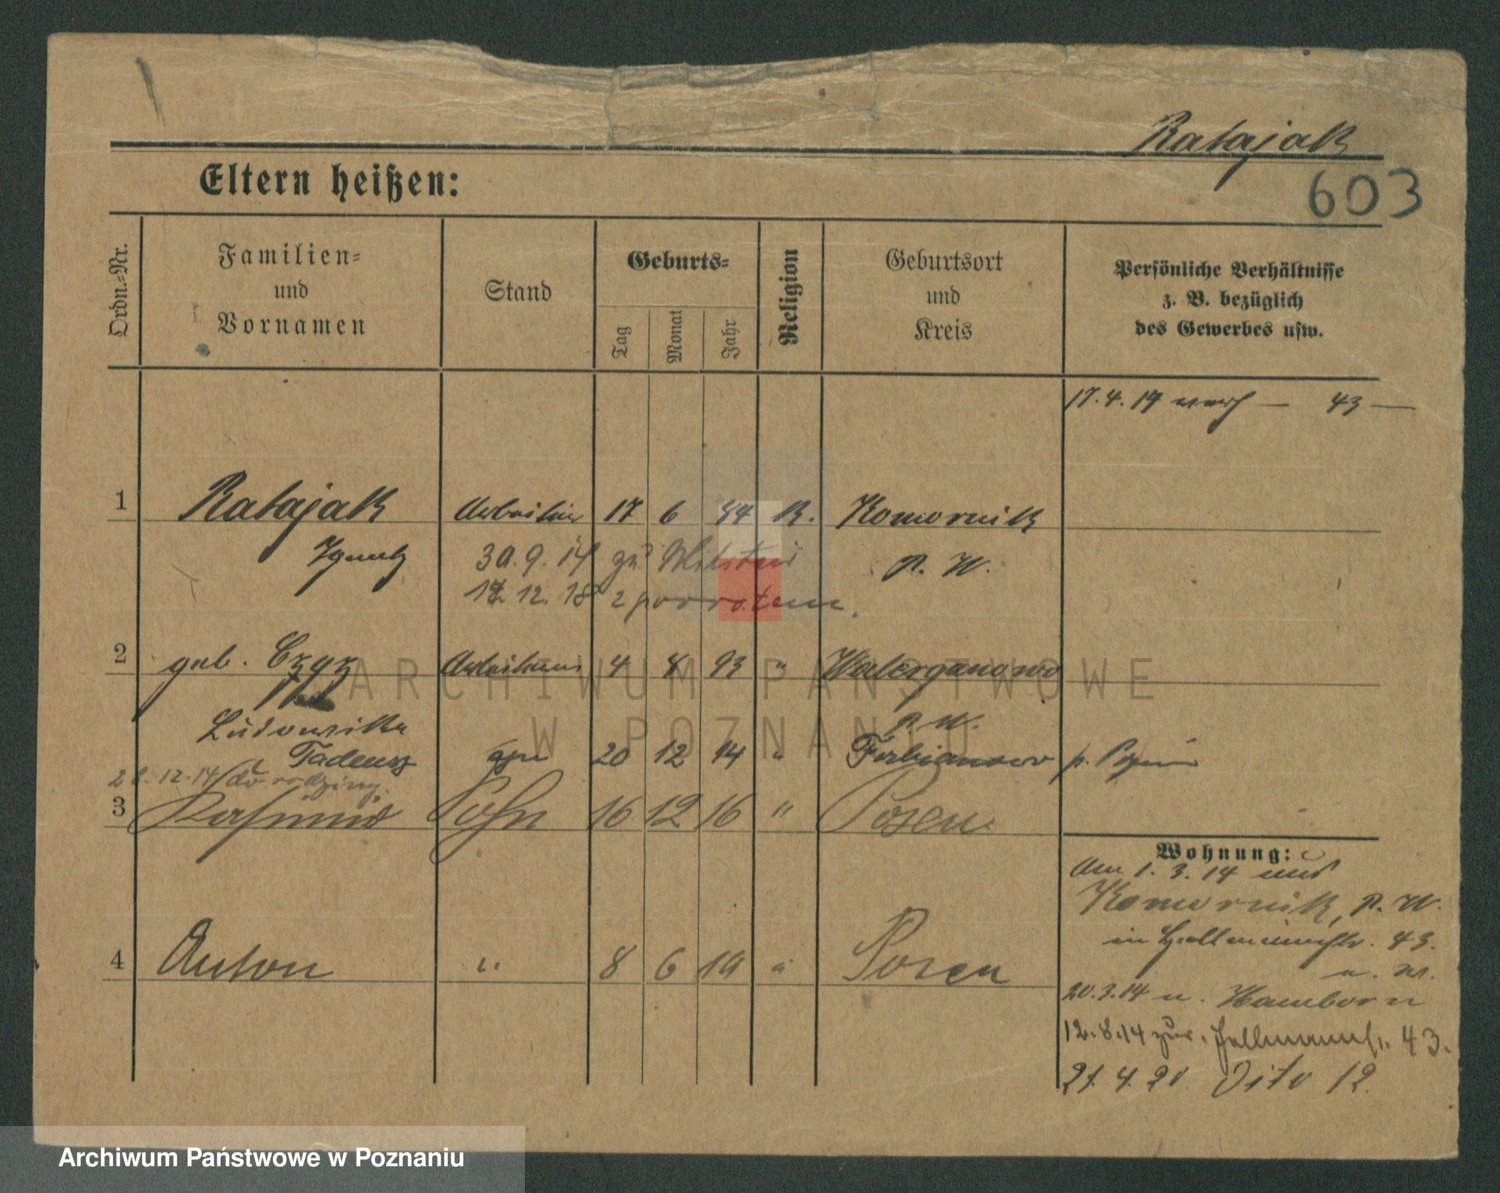 Ratajak
603
Eltern heißen:
Ordn.-Nr.
Familien-
und
Vornamen
Stand
Geburts-
Tag
Monat
Jahr
Religion
Geburtsort
und
Kreis
Persönliche Verhältnisse
z. B. bezüglich
des Gewerbes usw.
17.4.14 — 43 —
1 Ratajak Arbeiter 17 6 84 K. Komornik
Ignatz 30.9.14 zu P. W.
17.12.18 z powrotem.
2 geb. Arbeiterin 4 8 93 " Walerganowo
Ludowika P. W.
Tadeusz 20 12 14 " Fabianowo p.
12.14 do rodziny.
3 Sohn 16 12 16 " Posen
4 Anton " 8 6 19 " Posen
Wohnung:
Am 1.3.14 und
Komornik, P. W.
in 43.
20.3.14 n. Hamborn
12.8.14 zur. 43.
21.4.20 Dito 12.
ARCHIWUM PAŃSTWOWE
W POZNANIU
Archiwum Państwowe w Poznaniu